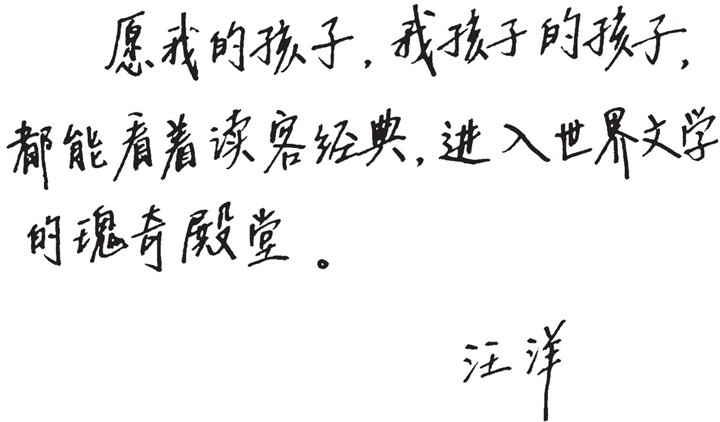 愿我的孩子,我孩子的孩子,
都能看着读客经典,进入世界文学
的瑰奇殿堂。
汪洋